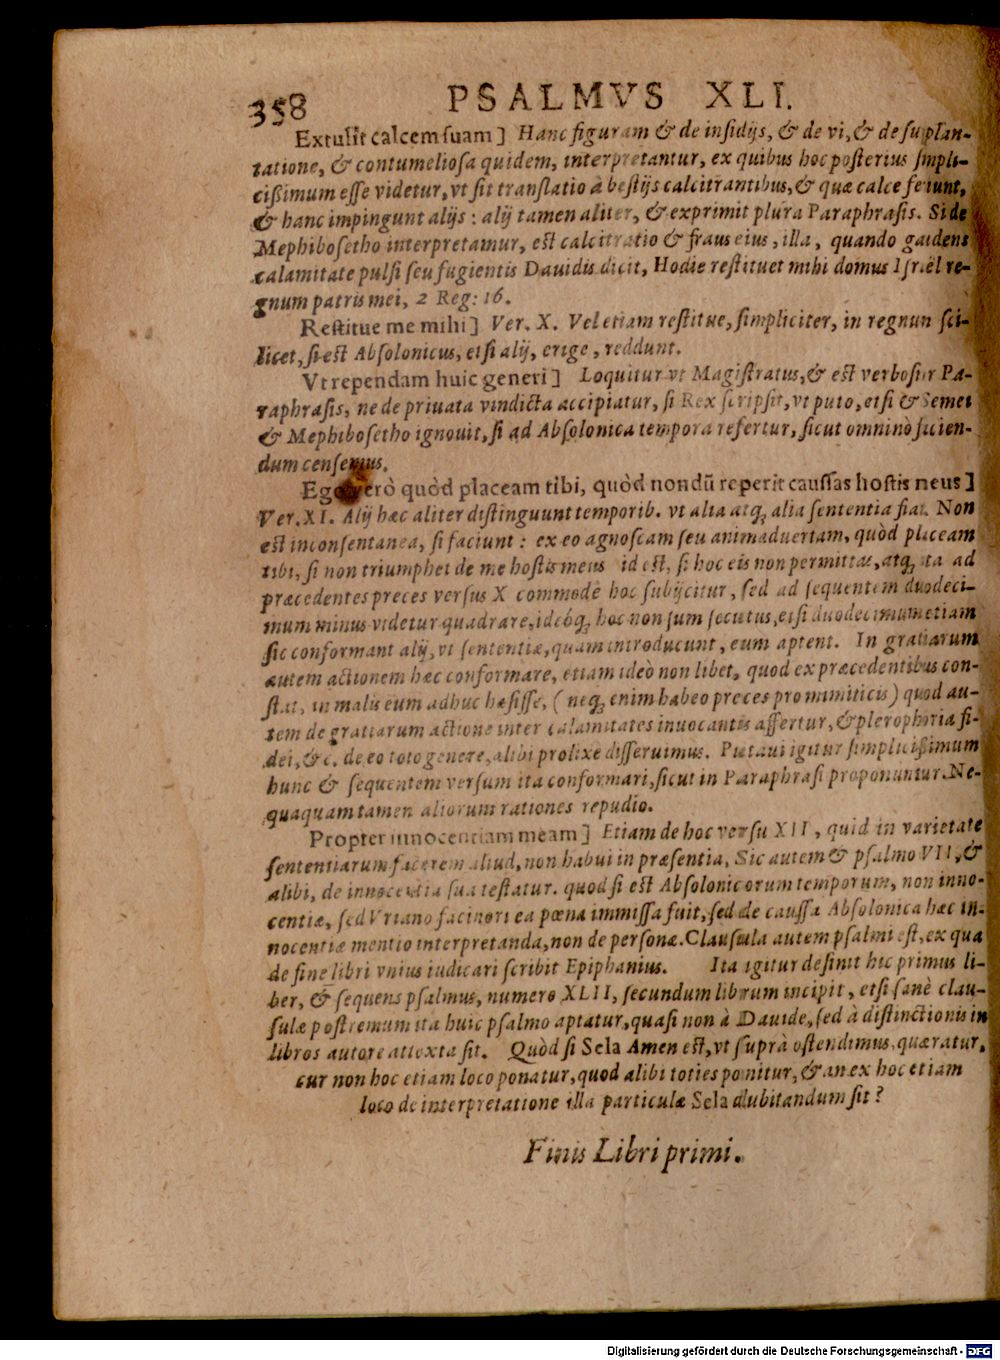 358 PSALMVS XLI.
Extulit calcem suam] Hanc figuram & de insidijs, & de vi, & de suplan-
tatione, & contumeliosa quidem, interpretantur, ex quibus hoc posterius simpli-
cißimum esse videtur, vt sit translatio à bestijs calcitrantibus, & quæ calce feriunt,
& hanc impingunt alijs: alij tamen aliter, & exprimit plura Paraphrasis. Si de
Mephibosetho interpretamur, est calcitratio & fraus eius, illa, quando gaudens
calamitate pulsi seu fugientis Dauidis dicit, Hodie restituet mihi domus Israël re-
gnum patris mei, 2 Reg: 16.
Restitue me mihi] Ver. X. Vel etiam restitue, simpliciter, in regnun sci-
licet, si est Absolonicus, etsi alij, erige, reddunt.
Vt rependam huic generi] Loquitur vt Magistratus, & est verbosior Pa-
raphrasis, ne de priuata vindicta accipiatur, si Rex scripsit, vt puto, etsi & Semei
& Mephibosetho ignouit, si ad Absolonica tempora refertur, sicut omninò sicien-
dum censemus.
Ego verò quòd placeam tibi, quòd nondũ reperit caussas hostis meus]
Ver. XI. Alij hæc aliter distinguunt temporib. vt alia atq; alia sententia fiat. Non
est inconsentanea, si faciunt: ex eo agnoscam seu animaduertam, quòd placeam
tibi, si non triumphet de me hostis meus id est, si hoc eis non permittas, atq; ita ad
præcedentes preces versus X commodè hoc subijcitur, sed ad sequentem duodeci-
mum minus videtur quadrare, ideóq; hoc non sum secutus, etsi duodecimum etiam
sic conformant alij, vt sententiæ, quam introducunt, eum aptent. In gratiarum
autem actionem hæc conformare, etiam ideò non libet, quod ex præcedentibus con-
stat, in malis eum adhuc hæsisse, (neq; enim habeo preces pro mimiticis) quod au-
tem de gratiarum actione inter calamitates inuocantis affertur, & plerophoria fi-
dei, &c. de eo toto genere, alibi prolixè disseruimus. Putaui igitur simplicißimum
hunc & sequentem versum ita conformari, sicut in Paraphrasi proponuntur. Ne-
quaquam tamen aliorum rationes repudio.
Propter innocentiam meam] Etiam de hoc versu XII, quid in varietate
sententiarum facerem aliud, non habui in præsentia, Sic autem & psalmo VII, &
alibi, de innocentia sua testatur. quod si est Absolonicorum temporum, non inno-
centiæ, sed Vriano facinori ea pœna immissa fuit, sed de caussa Absolonica hæc in-
nocentiæ mentio interpretanda, non de personæ. Clausula autem psalmi est, ex qua
de fine libri vnius iudicari scribit Epiphanius. Ita igitur desinit hic primus li-
ber, & sequens psalmus, numero XLII, secundum librum incipit, etsi sanè clau-
sulæ postremum ita huic psalmo aptatur, quasi non à Dauide, sed à distinctionis in
libros autore attexta sit. Quòd si Sela Amen est, vt suprà ostendimus, quæratur,
cur non hoc etiam loco ponatur, quod alibi toties ponitur, & an ex hoc etiam
loco de interpretatione illa particulæ Sela dubitandum sit?
Finis Libri primi.
Digitalisierung gefördert durch die Deutsche Forschungsgemeinschaft - DFG